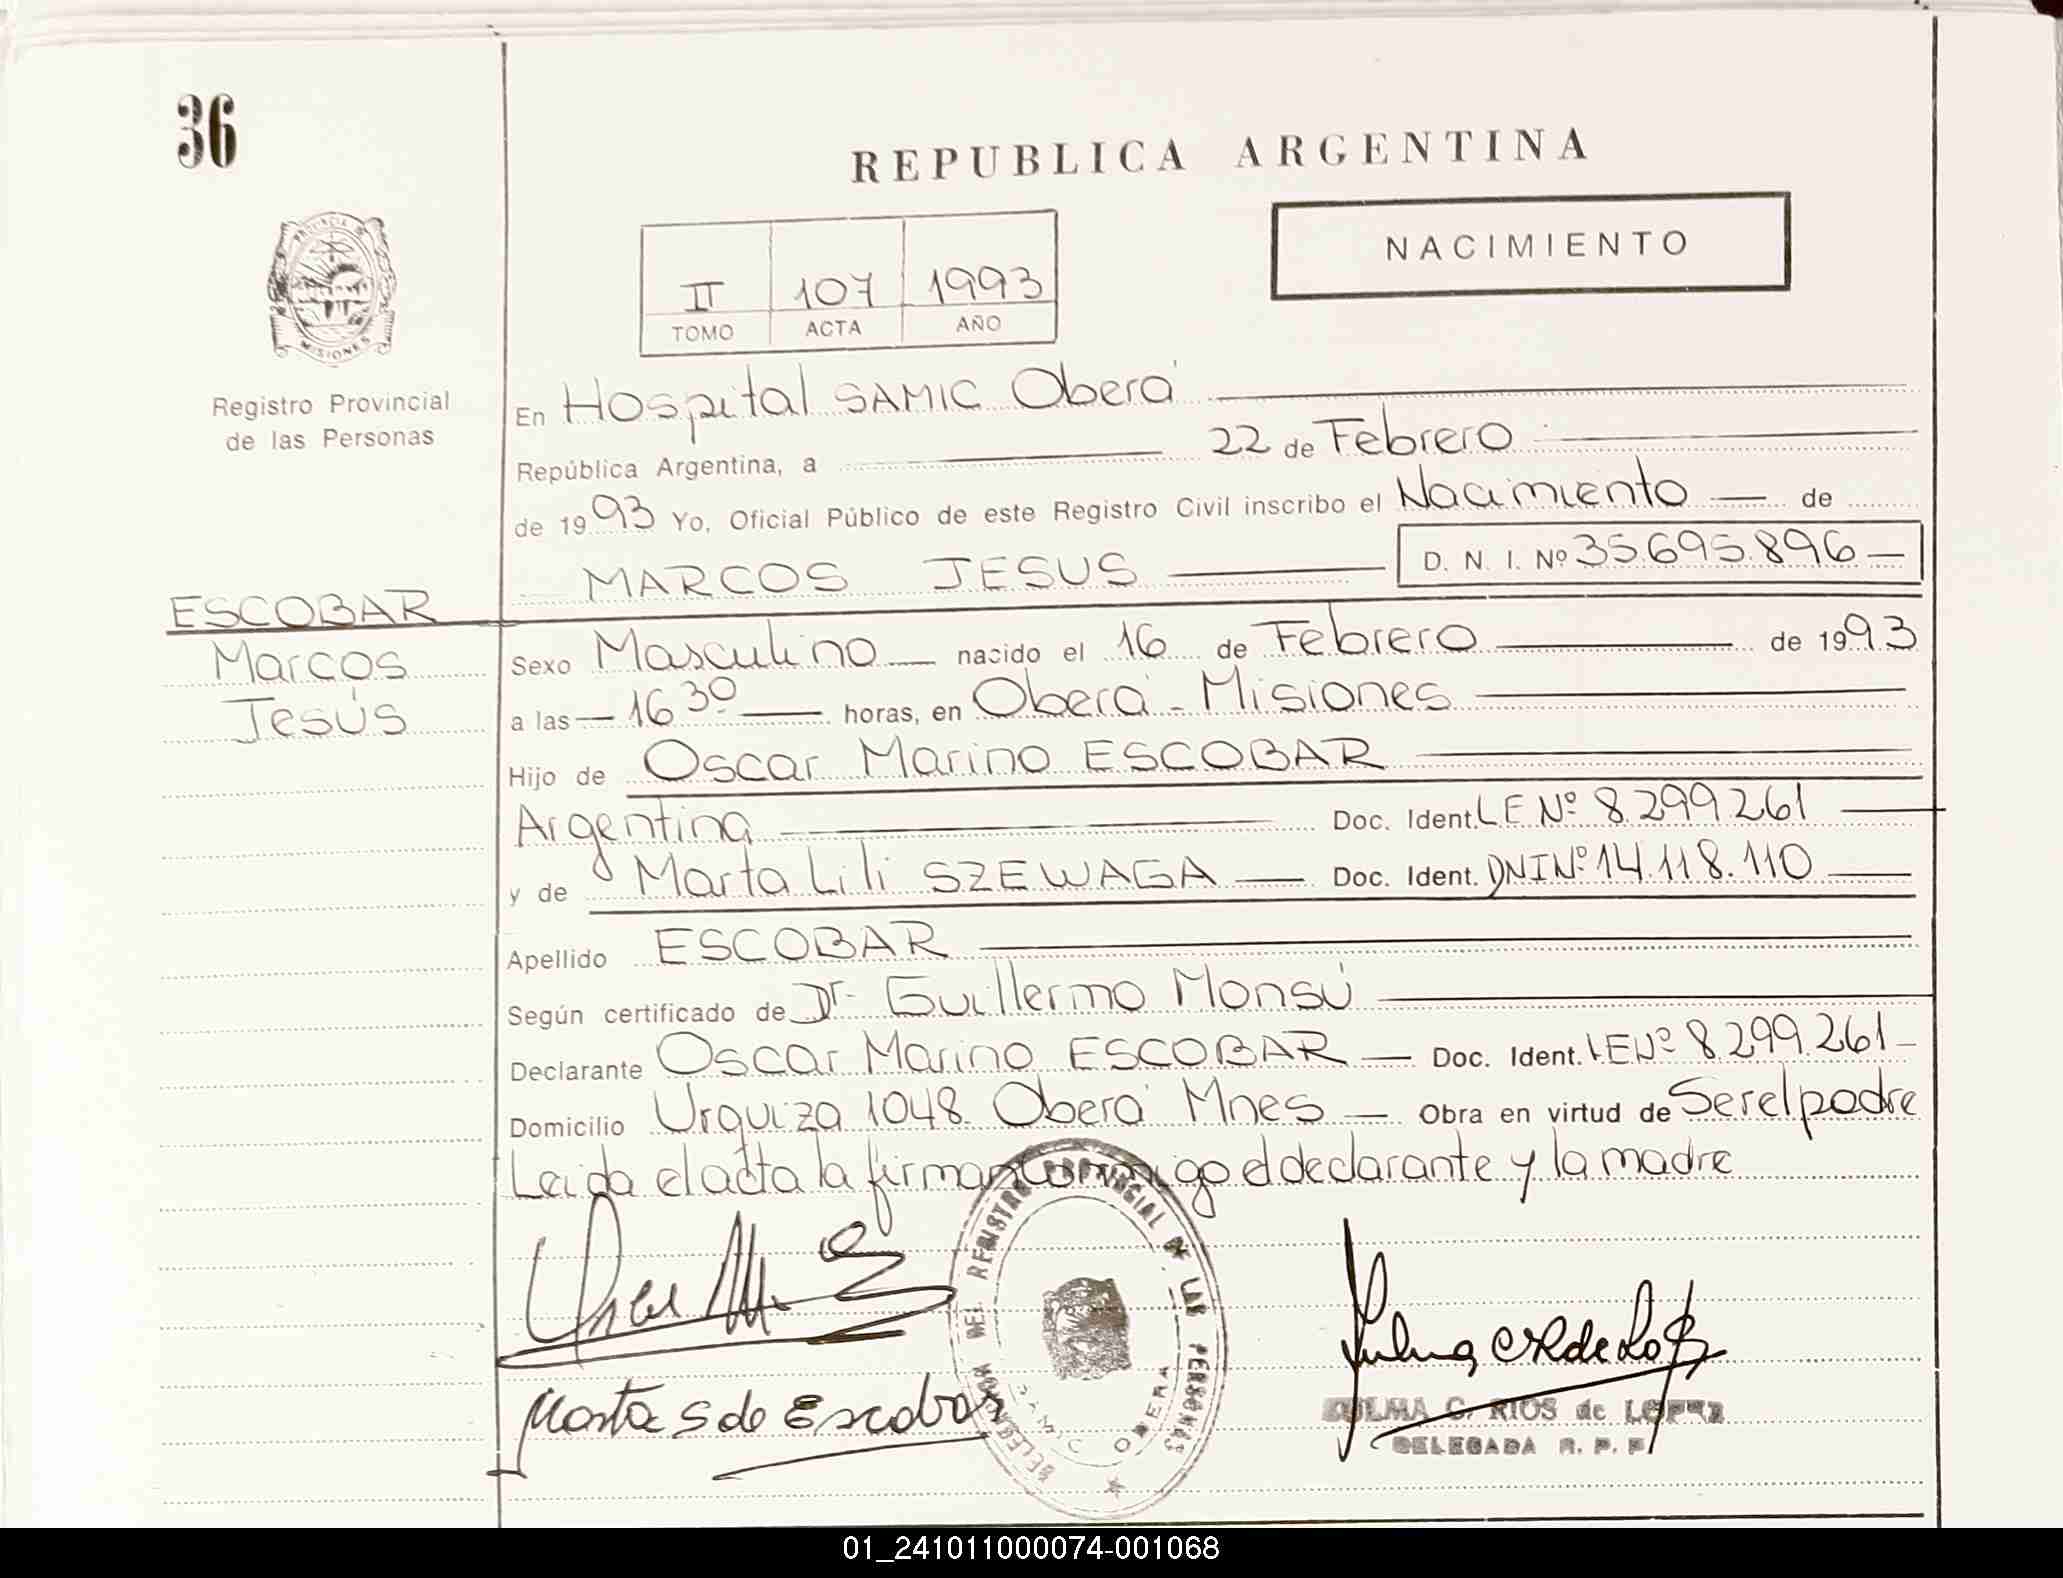 36
REPUBLICA ARGENTINA
NACIMIENTO
II 107 1993
TOMO ACTA AÑO
PROVINCIA DE MISIONES
Registro Provincial
de las Personas
En Hospital SAMIC Oberá
República Argentina, a 22 de Febrero
de 1993 Yo, Oficial Público de este Registro Civil inscribo el Nacimiento de
MARCOS JESUS D. N. I. Nº 35.695.896
ESCOBAR
Marcos
Jesús
Sexo Masculino nacido el 16 de Febrero de 1993
a las 16 30 horas, en Oberá - Misiones
Hijo de Oscar Marino ESCOBAR
Argentina Doc. Ident. LE Nº 8.299.261
y de Marta Lili SZEWAGA Doc. Ident. DNI Nº 14.118.110
Apellido ESCOBAR
Según certificado de Dr. Guillermo Monsú
Declarante Oscar Marino ESCOBAR Doc. Ident. LE Nº 8.299.261
Domicilio Urquiza 1048 Oberá Mnes Obra en virtud de Ser el padre
Leida el acta la firman conmigo el declarante y la madre
DELEGACION DEL REGISTRO PROVINCIAL DE LAS PERSONAS
OBERA
Marta S de Escobar
ZULMA C. RIOS de LOPEZ
DELEGADA R. P. P.
01_241011000074-001068